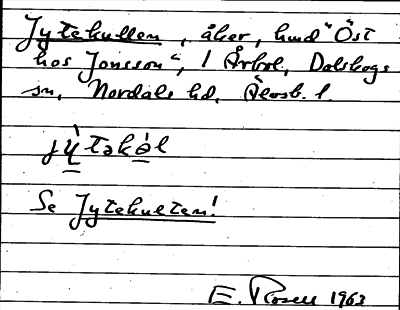 Jytekullen, åker, hmd "Öst
hos Jonsson", 1 Årbol, Dalskogs
sn, Nordals hd, Älvsb. l.
jỳtəkə̀l
Se Jytekulten!
E. Rosell 1963